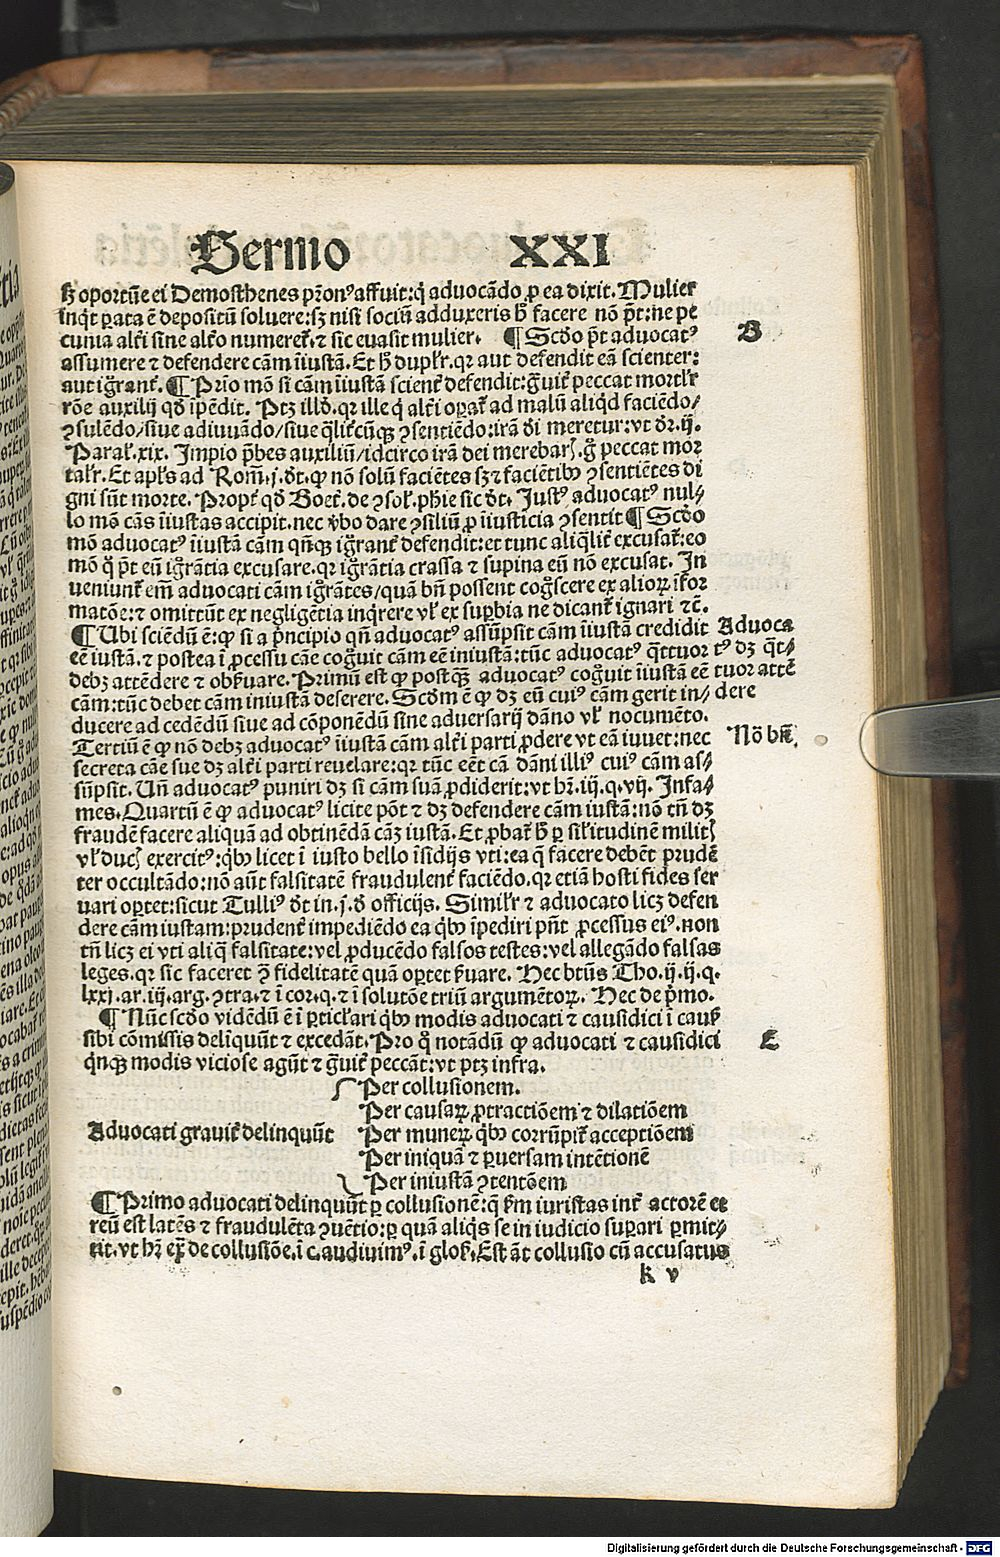 Sermo XXI
sꝫ oportūe ei Demosthenes pr̄onꝰ affuit: q̇ aduocādo ꝓ ea dixit. Mulier
inq̇t ꝑata ē depositū soluere: sꝫ nisi sociū adduxeris h̄ facere nō pōt: ne pe
cunia alt̄i sine alt̄o numeret̄. ⁊ sic euasit mulier. ¶ Scd̄o pōt aduocatꝰ
B
assumere ⁊ defendere cām īiustā. Et h̄ dupl̄r. qr aut defendit eā scienter:
aut iḡrant̄. ¶ Prīo mō si cām īiustā scient̄ defendit: g̈uit̄ peccat mortl̄r
rōe auxilij qd̄ īpēdit. Ptꝫ illd̄. qr ille q̇ alt̄i oꝑat̄ ad malū aliq̇d faciēdo/
ꝯsulēdo/ siue adiuuādo/ siue q̄lit̄cūqꝫ ꝯsentiēdo: irā di meretur: vt dr̄. ij.
Paral̄. xix. Impio p̄bes auxiliū/ idcirco irā dei merebaris. g̊ peccat mor
tal̄r. Et apl̄s ad Rom̄. j. dt̄. ꝙ nō solū faciētes sꝫ ⁊ faciētibꝰ ꝯsentiētes di
gni sūt morte. Propt̄ qd̄ Boet̄. de ꝯsol̄. ph̄ie sic dt̄. Justꝰ aduocatꝰ nul⸗
lo mō cās īiustas accipit. nec v̄bo dare ꝯsiliū ꝓ īiusticia ꝯsentit ¶ Scd̄o
mō aduocatꝰ īiustā cām qn̄qꝫ iḡrant̄ defendit: et tunc aliq̄lit̄ excusat̄: eo
mō q̊ pōt eū iḡrātia excusare. qr iḡrātia crassa ⁊ supina eū nō excusat. In
ueniunt̄ em̄ aduocati cām iḡrātes/ quā bn̄ possent cog̊scere ex alioꝝ īfor
matōe: ⁊ omittūt ex negligētia inq̇rere vl̄ ex suꝑbia ne dicant̄ ignari ⁊c̄.
¶ Ubi sciēdū ē: ꝙ si a ṗncipio qn̄ aduocatꝰ assūpsit cām īiustā credidit
eē iustā. ⁊ postea ī ꝓcessu cāe cog̊uit cām eē iniustā: tūc aduocatꝰ q̄ttuor
debꝫ attēdere ⁊ obẜuare. Primū est ꝙ postqꝫ aduocatꝰ cog̊uit īiustā eē
Aduoca
tꝰ dꝫ q̄t⸗
tuor attē
dere
cām: tūc debet cām iniustā deserere. Scd̄m ē ꝙ dꝫ eū cuiꝰ cām gerit in/
ducere ad cedēdū siue ad cōponēdū sine aduersarij dāno vl̄ nocumēto.
Tertiū ē ꝙ nō debꝫ aduocatꝰ īiustā cām alt̄i parti ꝓdere vt eā iuuet: nec
Nō bn̄.
secreta cāe sue dꝫ alt̄i parti reuelare: qr tūc eēt cā dāni illiꝰ cuiꝰ cām as⸗
sūpsit. Un̄ aduocatꝰ puniri dꝫ si cām suā ꝓdiderit: vt hr̄. iij. q. vij. Infa⸗
mes. Quartū ē ꝙ aduocatꝰ licite pōt ⁊ dꝫ defendere cām iustā: nō tn̄ dꝫ
fraudē facere aliquā ad obtinēdā cāꝫ iustā. Et ꝓbat̄ h̄ ꝑ sil̄itudinē militis
vl̄ ducis exercitꝰ: qͥbꝰ licet ī iusto bello īsidijs vti: ea q̄ facere debēt prudē
ter occultādo: nō aūt falsitatē fraudulent̄ faciēdo. qr etiā hosti fides ser
uari oꝑtet: sicut Tulliꝰ dt̄ in. j. d̄ officijs. Simil̄r ⁊ aduocato licꝫ defen
dere cām iustam: prudent̄ impediēdo ea qͥbꝰ īpediri pn̄t ꝓcessus eiꝰ. non
tn̄ licꝫ ei vti aliq̄ falsitate: vel ꝓducēdo falsos testes: vel allegādo falsas
leges. qr sic faceret ꝯ̄ fidelitatē quā oꝑtet ẜuare. Hec btūs Tho. ij. ij. q.
lxxj. ar. iij. arg. ꝯtra. ⁊ ī cor. q. ⁊ ī solutōe triū argumētoꝝ. Hec de ṗmo.
¶ Nūc scd̄o vidēdū ē ī ꝑticl̄ari qͥbꝰ modis aduocati ⁊ causidici ī causis
sibi cōmissis deliquūt ⁊ excedāt. Pro q̊ notādū ꝙ aduocati ⁊ causidici
E
q̇nqꝫ modis viciose agūt ⁊ g̈uit̄ peccāt: vt ptꝫ infra.
Per collusionem.
Per causaꝝ ꝓtractiōem ⁊ dilatiōem
Aduocati grauit̄ delinquūt Per muneꝝ qͥbꝰ corrūpit̄ acceptiōem
Per iniquā ⁊ ꝑuersam intētionē
Per iniustā ꝯtentōem
¶ Primo aduocati delinquūt ꝑ collusionē: q̄ ẜm iuristas int̄ actorē et
reū est latēs ⁊ fraudulēta ꝯuētio: ꝑ quā aliq̇s se in iudicio suꝑari ꝑmit⸗
tit. vt hr̄ ex̄ de collusiōe. ī c. audiuimꝰ. ī glos. Est āt collusio cū accusatus
k v
Digitalisierung gefördert durch die Deutsche Forschungsgemeinschaft - DFG